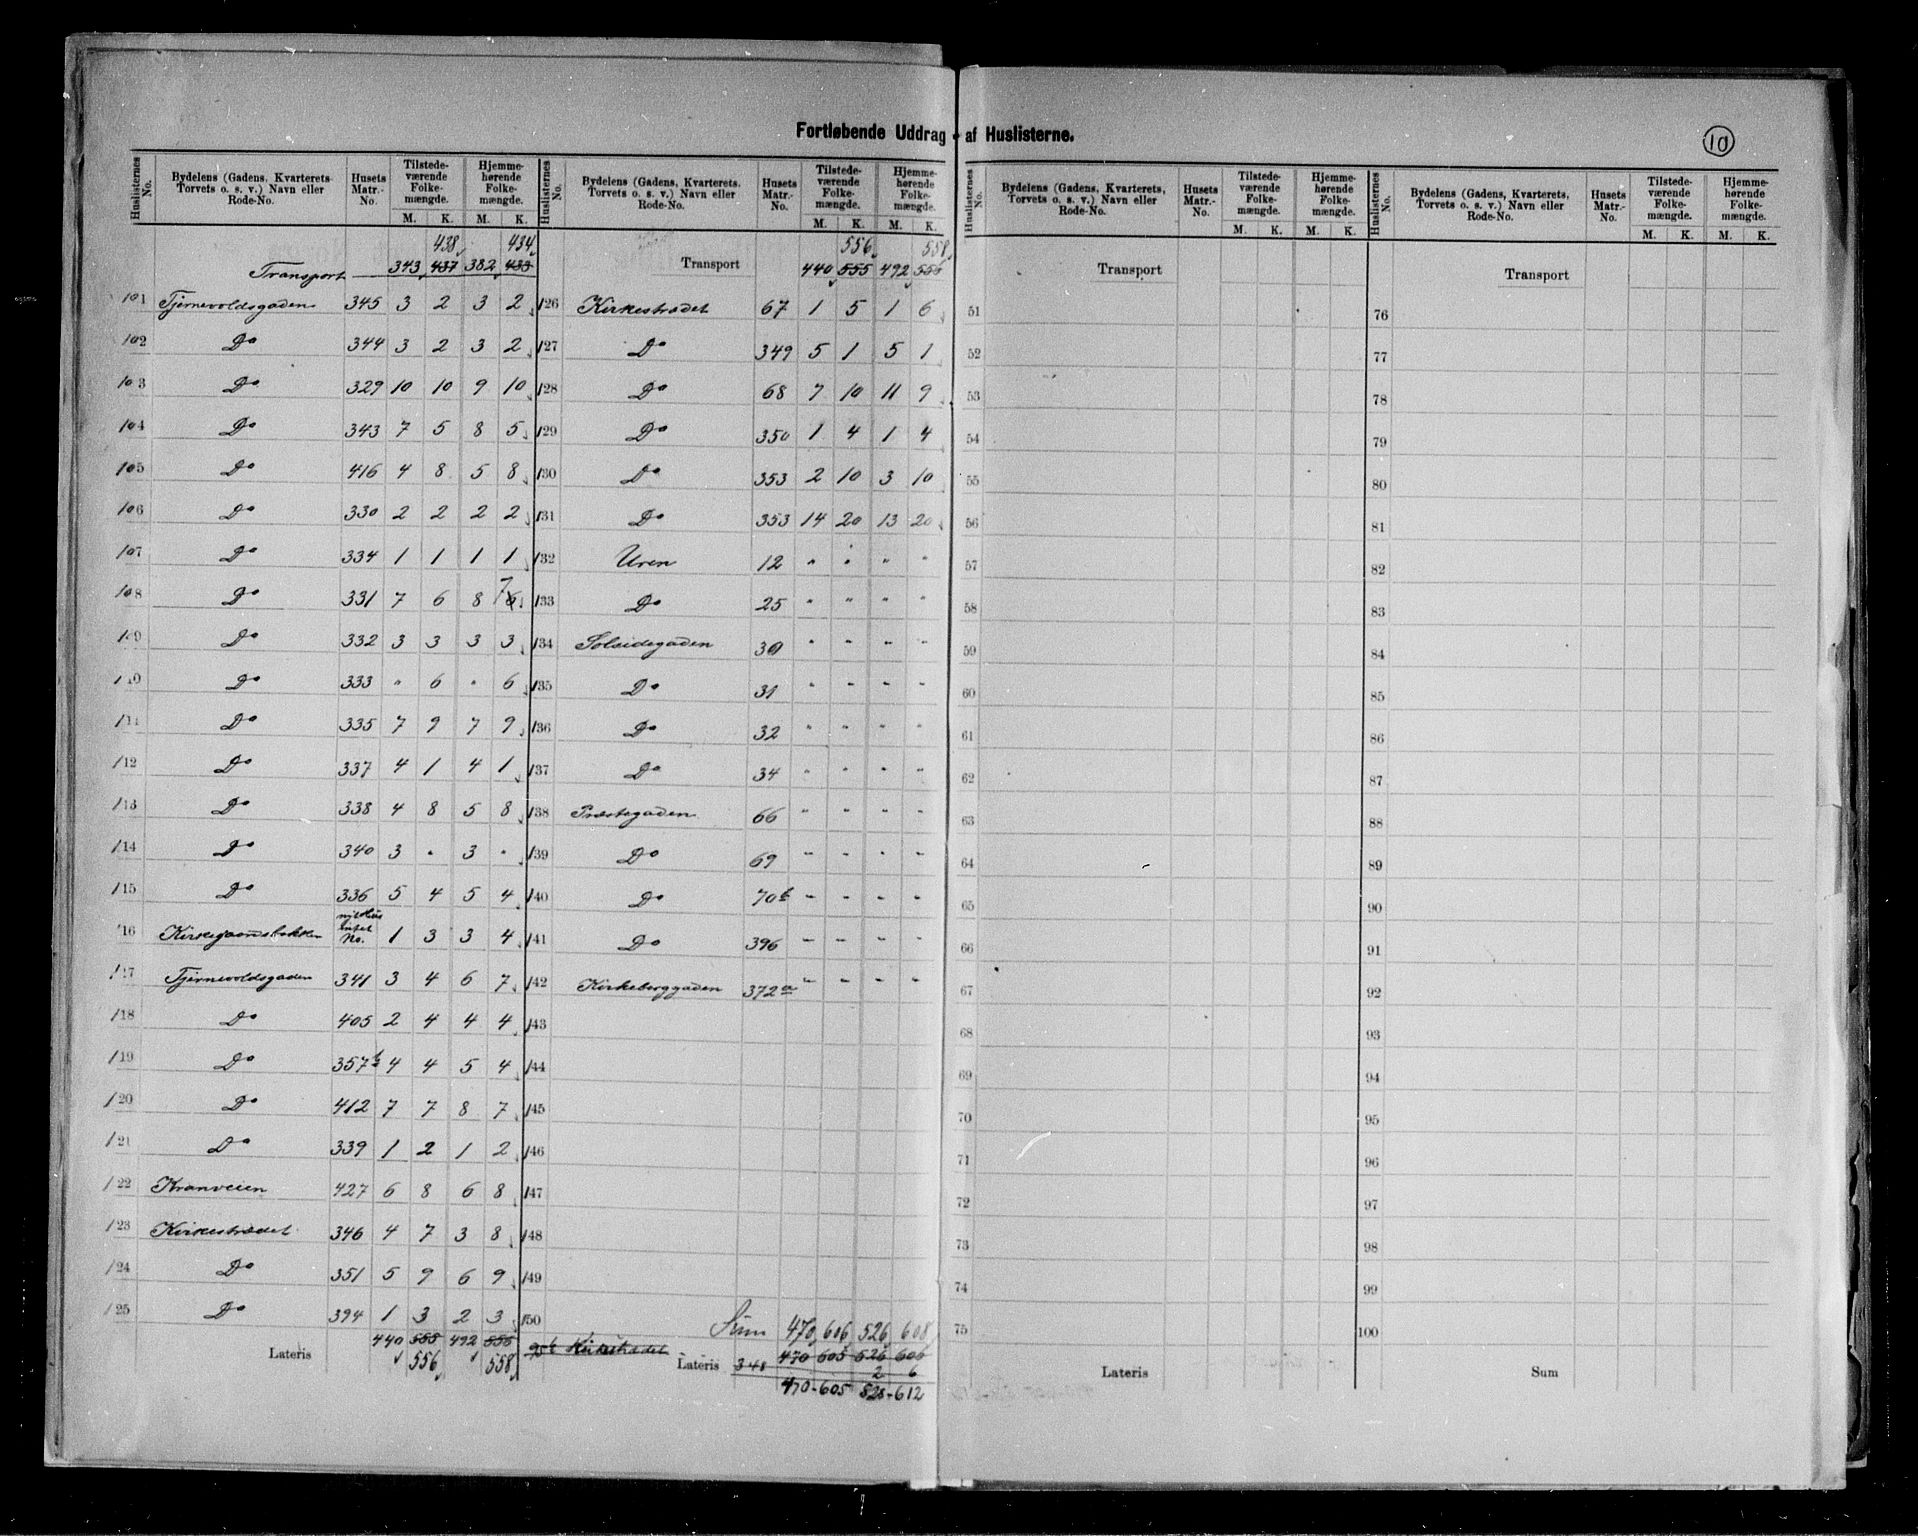 Fortløbende Uddrag af Huslisterne.
10
Huslisternes No. Bydelens (Gadens, Kvarterets Torvets o. s. v.) Navn eller Rode-No. Husets Matr.-No. Tilstede-værende Folke-mængde. M. K. Hjemme-hørende Folke-mængde. M. K.
438 434
Transport 343 437 382 433
101 Tjernevoldsgaden 345 3 2 3 2
102 Do 344 3 2 3 2
103 Do 329 10 10 9 10
104 Do 343 7 5 8 5
105 Do 416 4 8 5 8
106 Do 330 2 2 2 2
107 Do 334 1 1 1 1
108 Do 331 7 6 8 7
109 Do 332 3 3 3 3
110 Do 333 " 6 " 6
111 Do 335 7 9 7 9
112 Do 337 4 1 4 1
113 Do 338 4 8 5 8
114 Do 340 3 " 3 "
115 Do 336 5 4 5 4
116 Kirkegaardsbakken nyt Hus intet No. 1 3 3 4
117 Tjernevoldsgaden 341 3 4 6 7
118 Do 405 2 4 4 4
119 Do 357b 4 4 5 4
120 Do 412 7 7 8 7
121 Do 339 1 2 1 2
122 Kranveien 427 6 8 6 8
123 Kirkestrædet 346 4 7 3 8
124 Do 351 5 9 6 9
125 Do 394 1 3 2 3
Lateris 440 555 492 556
556 558
Huslisternes No. Bydelens (Gadens, Kvarterets. Torvets o. s. v.) Navn eller Rode-No. Husets Matr.-No. Tilstede-værende Folke-mængde. M. K. Hjemme-hørende Folke-mængde. M. K.
556 558
Transport 440 555 492 556
126 Kirkestrædet 67 1 5 1 6
127 Do 349 5 1 5 1
128 Do 68 7 10 11 9
129 Do 350 1 4 1 4
130 Do 353 2 10 3 10
131 Do 353 14 20 13 20
132 Uren 12 " " " "
133 Do 25 " " " "
134 Solsidegaden 30 " " " "
135 Do 31 " " " "
136 Do 32 " " " "
137 Do 34 " " " "
138 Præstegaden 66 " " " "
139 Do 69 " " " "
140 Do 70b " " " "
141 Do 396 " " " "
142 Kirkeberggaden 372a " " " "
143
144
145
146
147
148
149
150 Sum 470 606 526 608
Kirkestrædet Lateris 348 470 605 526 606
2 6
470-605 528-612
Huslisternes No. Bydelens (Gadens, Kvarterets, Torvets o. s. v.) Navn eller Rode-No. Husets Matr.-No. Tilstede-værende Folke-mængde. M. K. Hjemme-hørende Folke-mængde. M. K.
Transport
51
52
53
54
55
56
57
58
59
60
61
62
63
64
65
66
67
68
69
70
71
72
73
74
75
Lateris
Huslisternes No. Bydelens (Gadens, Kvarterets, Torvets o. s. v.) Navn eller Rode-No. Husets Matr.-No. Tilstede-værende Folke-mængde. M. K. Hjemme-hørende Folke-mængde. M. K.
Transport
76
77
78
79
80
81
82
83
84
85
86
87
88
89
90
91
92
93
94
95
96
97
98
99
100
Sum